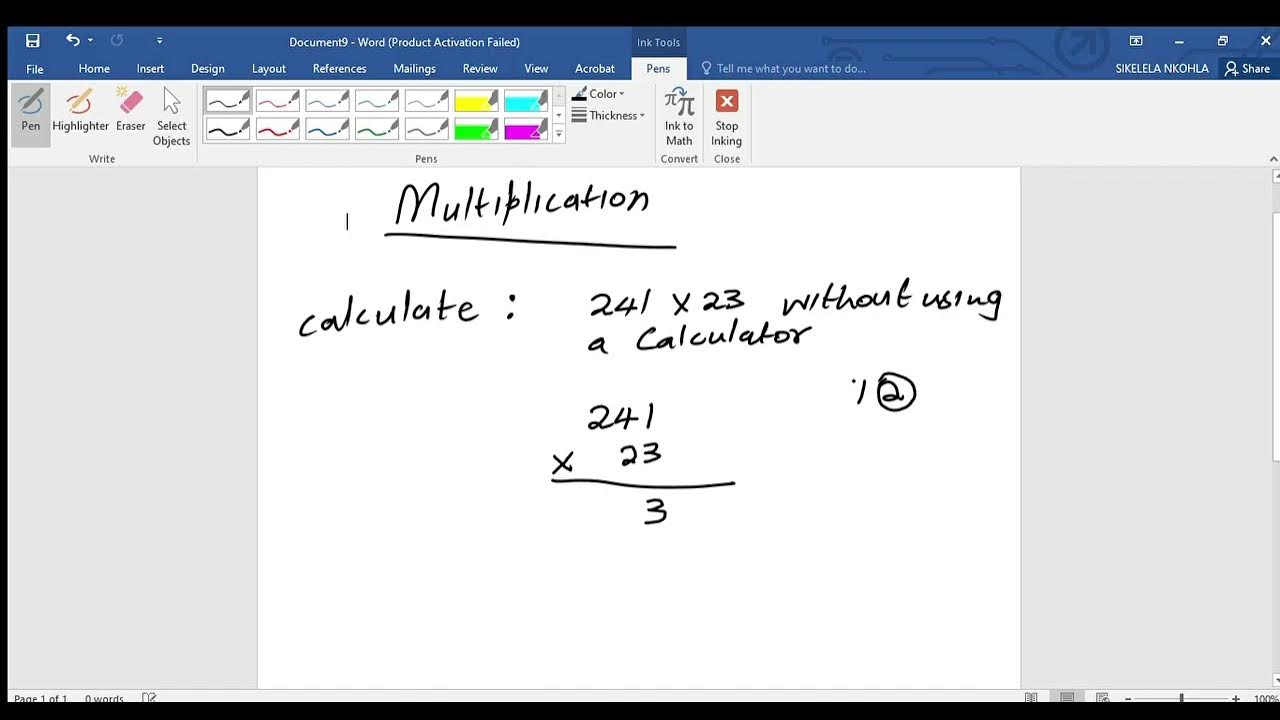 Document9 - Word (Product Activation Failed)
Ink Tools
File Home Insert Design Layout References Mailings Review View Acrobat Pens Tell me what you want to do... SIKELELA NKOHLA Share
Pen Highlighter Eraser Select Objects
Color
Thickness
Ink to Math
Stop Inking
Write Pens Convert Close
Multiplication
calculate : 241 x 23 without using
a Calculator
12
241
x 23
3
Page 1 of 1 0 words 100%